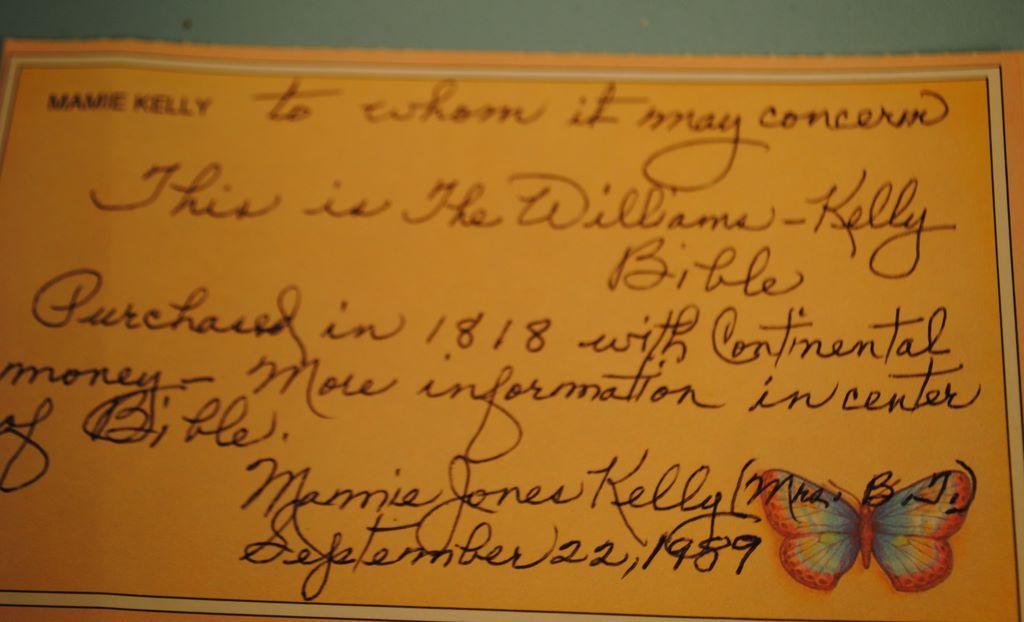 MAMIE KELLY to whom it may concern
This is The Williams-Kelly
Bible
Purchased in 1818 with Continental
money- More information in center
of Bible.
Mamie Jones Kelly (Mrs. B.T.)
September 22, 1989